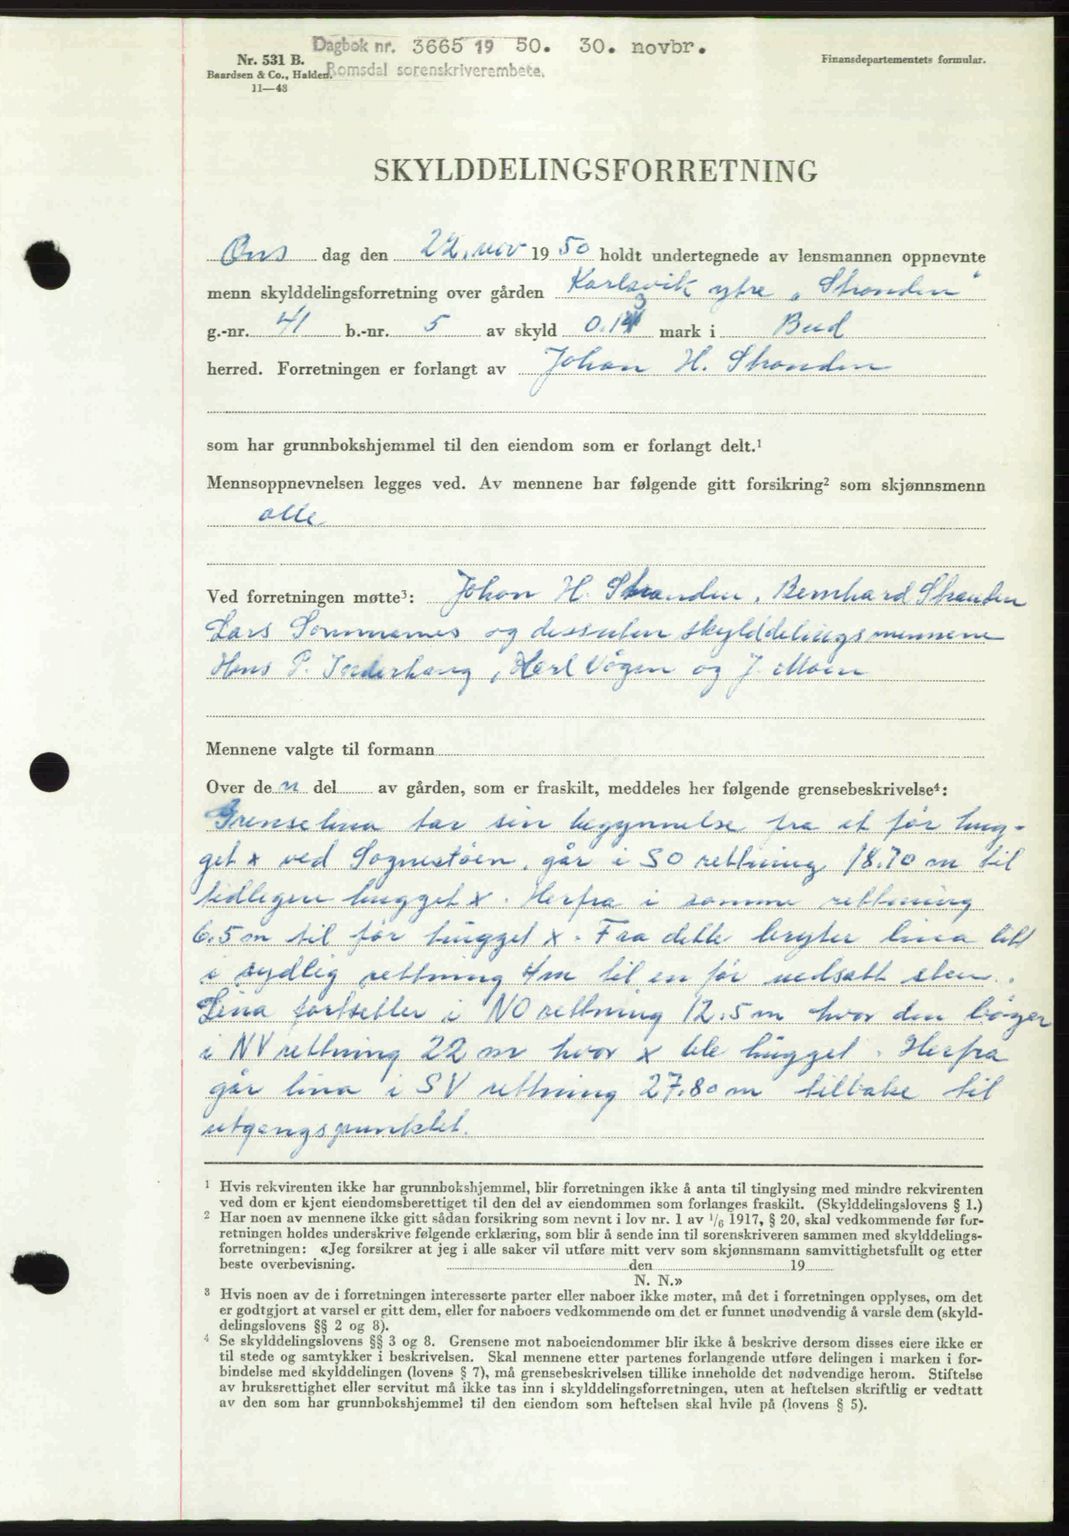 Dagbok nr. 3665 19 50. 30. novbr.
Romsdal sorenskriverembete.
Nr. 531 B.
Baardsen & Co., Halden.
11—48
Finansdepartementets formular.
SKYLDDELINGSFORRETNING
Ons dag den 22. nov 19 50 holdt undertegnede av lensmannen oppnevnte
menn skylddelingsforretning over gården Karlsvik ytre „Stranden"
g.-nr. 41 b.-nr. 5 av skyld 0.1 mark i Bud
herred. Forretningen er forlangt av Johan H. Stranden
som har grunnbokshjemmel til den eiendom som er forlangt delt.¹
Mennsoppnevnelsen legges ved. Av mennene har følgende gitt forsikring² som skjønnsmenn
alle
Ved forretningen møtte³: Johan H. Stranden, Bernhard Stranden
Lars Sommernes og dessuten skylddelingsmennene
Hans P. , Karl Vågen og J. Moen
Mennene valgte til formann
Over den del av gården, som er fraskilt, meddeles her følgende grensebeskrivelse⁴:
Grenselina tar sin begynnelse fra et før hug-
get x ved Sognestøen, går i SO rettning 18.70 m til
tidligere hugget x. Herfra i samme rettning
6.5 m til før hugget x. Fra dette bryter lina litt
i sydlig rettning 4m til en før nedsatt sten.
Lina fortsetter i NO rettning 12.5 m hvor den bøyer
i NV rettning 22 m hvor x ble hugget. Herfra
går lina i SV rettning 27.80 m tilbake til
utgangspunktet.
¹ Hvis rekvirenten ikke har grunnbokshjemmel, blir forretningen ikke å anta til tinglysing med mindre rekvirenten
ved dom er kjent eiendomsberettiget til den del av eiendommen som forlanges fraskilt. (Skylddelingslovens § 1.)
² Har noen av mennene ikke gitt sådan forsikring som nevnt i lov nr. 1 av 1/6 1917, § 20, skal vedkommende før for-
retningen holdes underskrive følgende erklæring, som blir å sende inn til sorenskriveren sammen med skylddelings-
forretningen: «Jeg forsikrer at jeg i alle saker vil utføre mitt verv som skjønnsmann samvittighetsfullt og etter
beste overbevisning. den 19
N. N.»
³ Hvis noen av de i forretningen interesserte parter eller naboer ikke møter, må det i forretningen opplyses, om det
er godtgjort at varsel er gitt dem, eller for naboers vedkommende om det er funnet unødvendig å varsle dem (skyld-
delingslovens §§ 2 og 8).
⁴ Se skylddelingslovens §§ 3 og 8. Grensene mot naboeiendommer blir ikke å beskrive dersom disses eiere ikke er
til stede og samtykker i beskrivelsen. Skal mennene etter partenes forlangende utføre delingen i marken i for-
bindelse med skylddelingen (lovens § 7), må grensebeskrivelsen tillike inneholde det nødvendige herom. Stiftelse
av bruksrettighet eller servitut må ikke tas inn i skylddelingsforretningen, uten at heftelsen skriftlig er vedtatt
av den som har grunnbokshjemmel til den eiendom som heftelsen skal hvile på (lovens § 5).